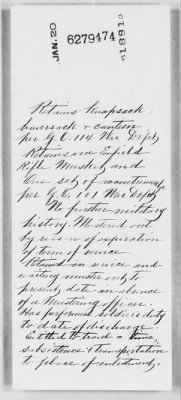 JAN. 20
6279474
Retains Knapsack
haversack & canteen
per G.O. 114 War Dept
Retains one Enfield
Rifle Musket and
One set of accoutrements
per G.O. 101 War Dept
No further military
history. Mustered out
by reason of expiration
of term of service.
Retained in service and
waiting muster only to
present date in absence
of a Mustering officer.
Has performed soldiers duty
to date of discharge.
Entitled to
subsistence & transportation
to place of enrolment.